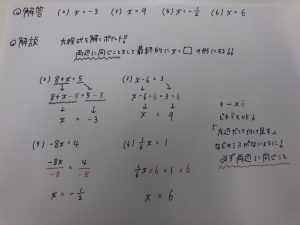 ◎解答 (2) x=-3 (3) x=9 (5) x=-1/2 (6) x=6
◎解説 方程式を解くポイント!!
両辺に同じことをして最終的に x=□ の形にする!!
(2) 8+x=5
8+x-8=5-8
x = -3
(3) x-6=3
x-6+6=3+6
x = 9
(4) -8x=4
-8x/-8 = 4/-8
x=-1/2
(6) 1/6 x=1
1/6 x×6=1×6
x = 6
+-×÷
「左辺だけ付け足す」
などのミスがないように!!
必ず両辺に同じこと